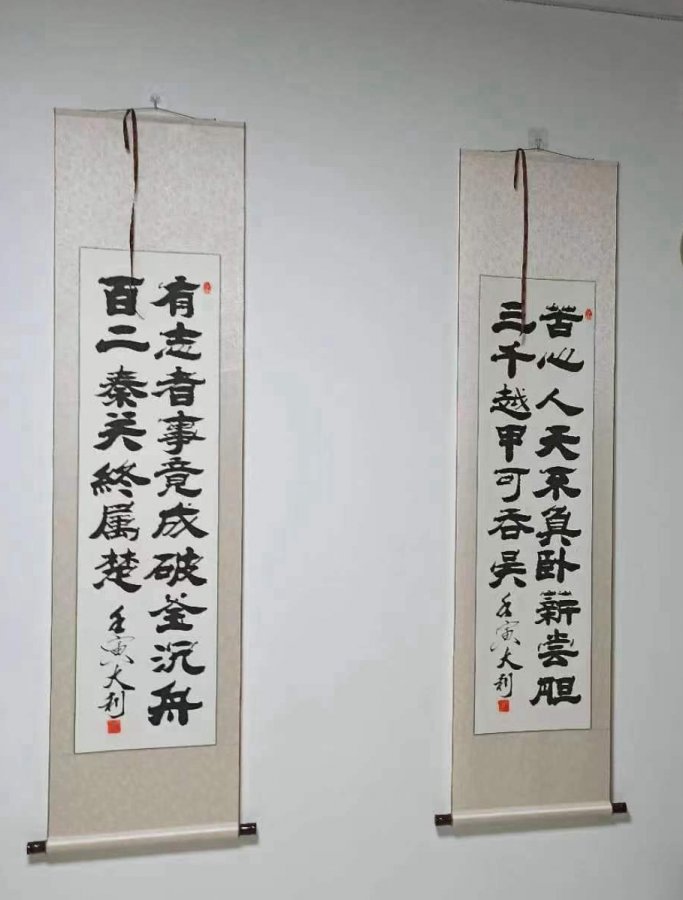 有志者事竟成破釜沉舟
百二秦关終属楚
壬寅大利
苦心人天不負卧薪尝胆
三千越甲可吞吴
壬寅大利